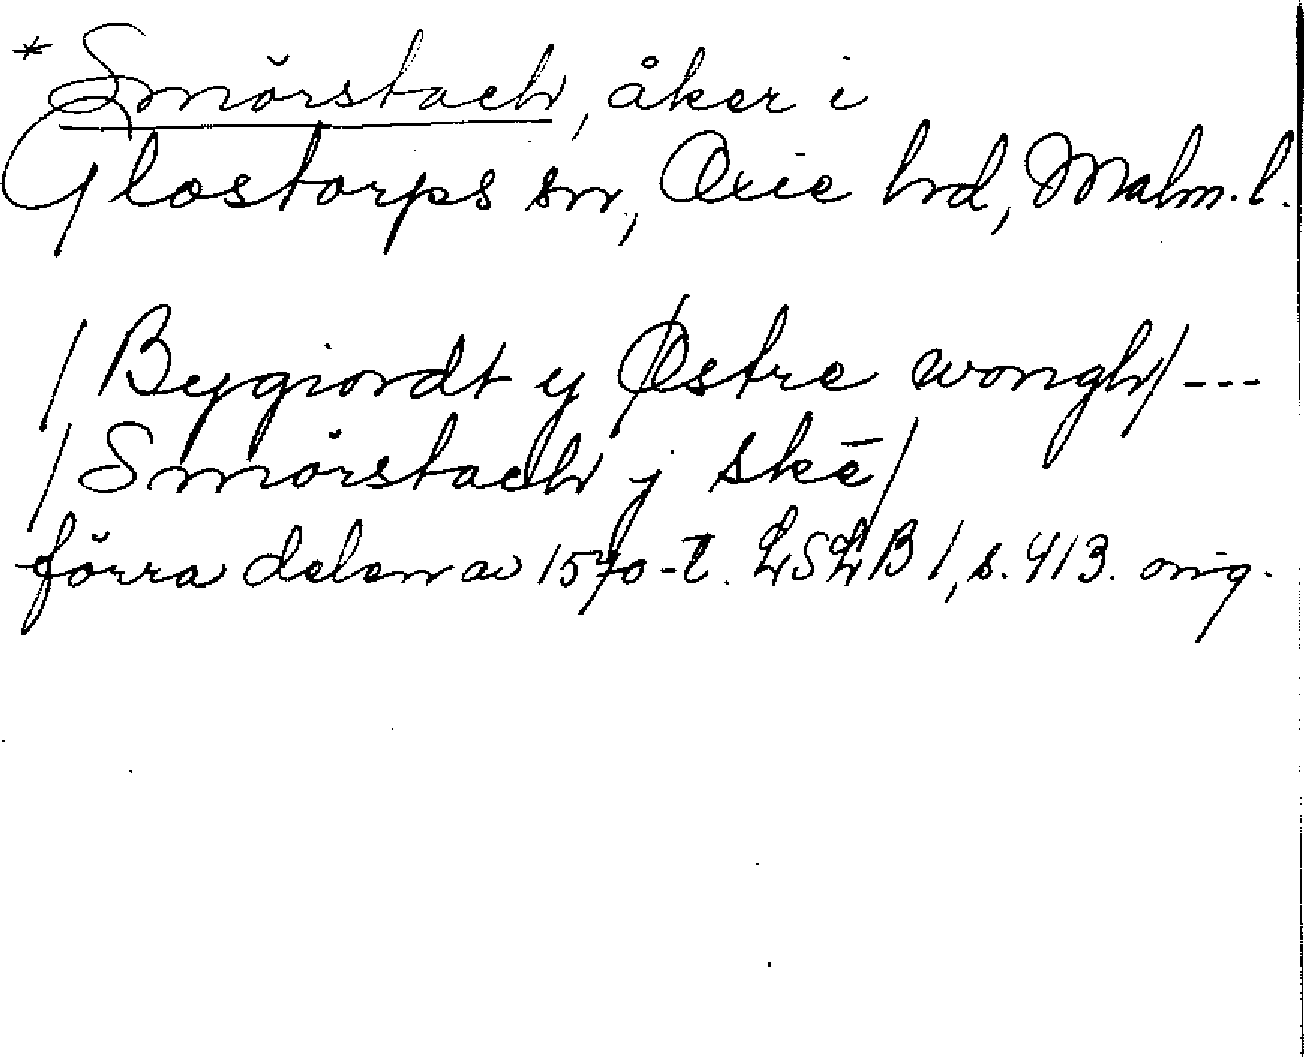 * Smörstach, åker i
Glostorps sn, Oxie hd, Malm. l.
/Bygiordt y Østre wongh/ ---
/Smörstach j skē/
förra delen av 1570-t. LSLB 1, s. 413. orig.